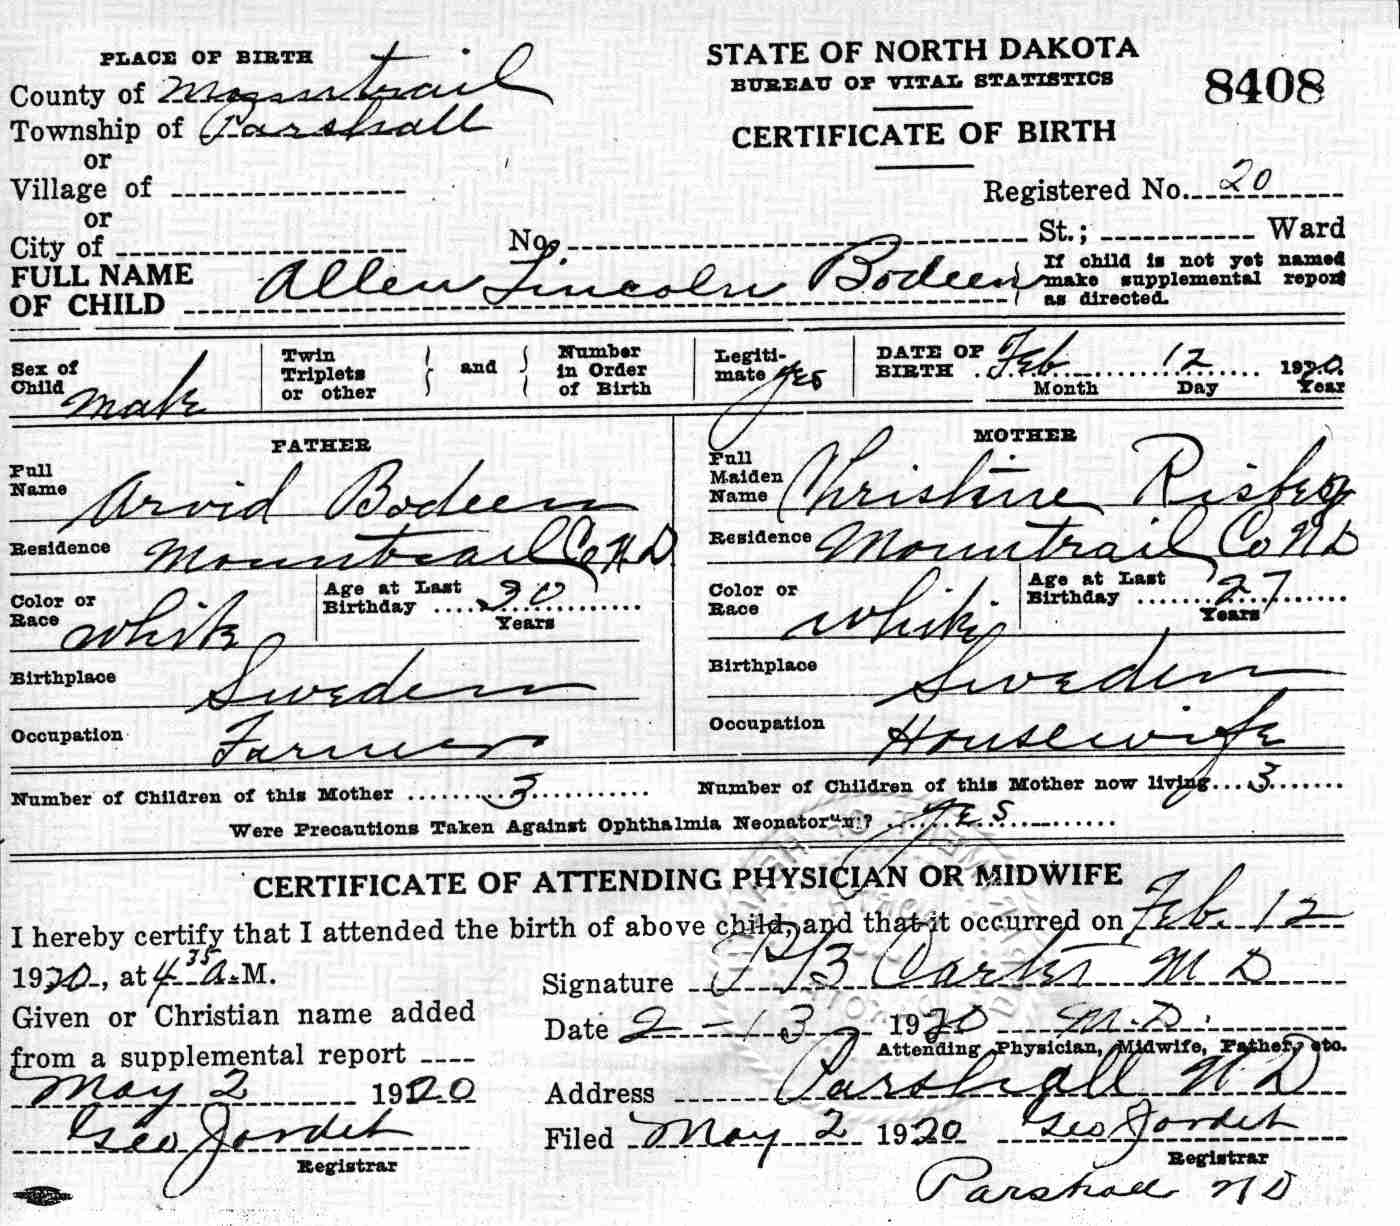 PLACE OF BIRTH
County of Mountrail
Township of Parshall
or
Village of
or
City of
STATE OF NORTH DAKOTA
BUREAU OF VITAL STATISTICS
CERTIFICATE OF BIRTH
8408
Registered No. 20
No. St.; Ward
FULL NAME OF CHILD Allen Lincoln Bodeen
If child is not yet named
make supplemental report
as directed.
Sex of Child Male
Twin Triplets or other } and { Number in Order of Birth
Legiti-mate yes
DATE OF BIRTH Feb 12 1920
Month Day Year
FATHER
Full Name Arvid Bodeen
Residence Mountrail Co N.D.
Color or Race White
Age at Last Birthday 30 Years
Birthplace Sweden
Occupation Farmer
MOTHER
Full Maiden Name Christine
Residence Mountrail Co N D
Color or Race White
Age at Last Birthday 27 Years
Birthplace Sweden
Occupation Housewife
Number of Children of this Mother 3
Number of Children of this Mother now living 3
Were Precautions Taken Against Ophthalmia Neonatorum? Yes
CERTIFICATE OF ATTENDING PHYSICIAN OR MIDWIFE
I hereby certify that I attended the birth of above child, and that it occurred on Feb. 12
1920, at 4 35 A.M.
Given or Christian name added
from a supplemental report
May 2 1920
Geo Jordet
Registrar
Signature Carter M D
Date 2-13 1920 M.D.
Attending Physician, Midwife, Father, etc.
Address Parshall N D
Filed May 2 1920 Geo Jordet
Registrar
Parshall N D